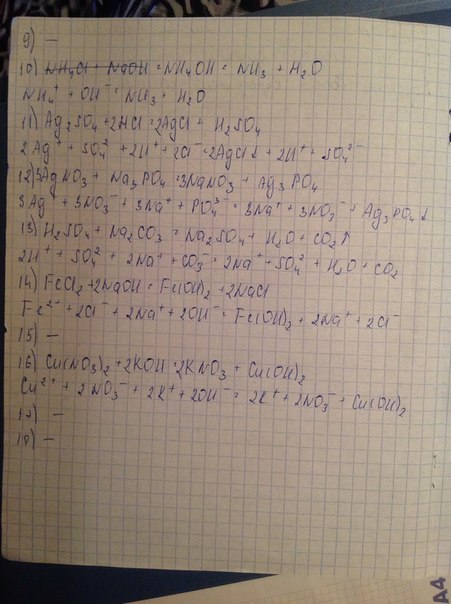 9) —
10) NH4Cl + NaOH = NH4OH = NH3 + H2O
NH4⁺ + OH⁻ = NH3 + H2O
11) Ag2SO4 + 2HCl = 2AgCl + H2SO4
2Ag⁺ + SO4²⁻ + 2H⁺ + 2Cl⁻ = 2AgCl↓ + 2H⁺ + SO4²⁻
12) 3AgNO3 + Na3PO4 = 3NaNO3 + Ag3PO4
3Ag⁺ + 3NO3⁻ + 3Na⁺ + PO4³⁻ = 3Na⁺ + 3NO3⁻ + Ag3PO4↓
13) H2SO4 + Na2CO3 = Na2SO4 + H2O + CO2↑
2H⁺ + SO4² + 2Na⁺ + CO3⁻ = 2Na⁺ + SO4² + H2O + CO2
14) FeCl2 + 2NaOH = Fe(OH)2 + 2NaCl
Fe²⁺ + 2Cl⁻ + 2Na⁺ + 2OH⁻ = Fe(OH)2 + 2Na⁺ + 2Cl⁻
15) —
16) Cu(NO3)2 + 2KOH = 2KNO3 + Cu(OH)2
Cu²⁺ + 2NO3⁻ + 2K⁺ + 2OH⁻ = 2K⁺ + 2NO3⁻ + Cu(OH)2
17) —
18) —
A4